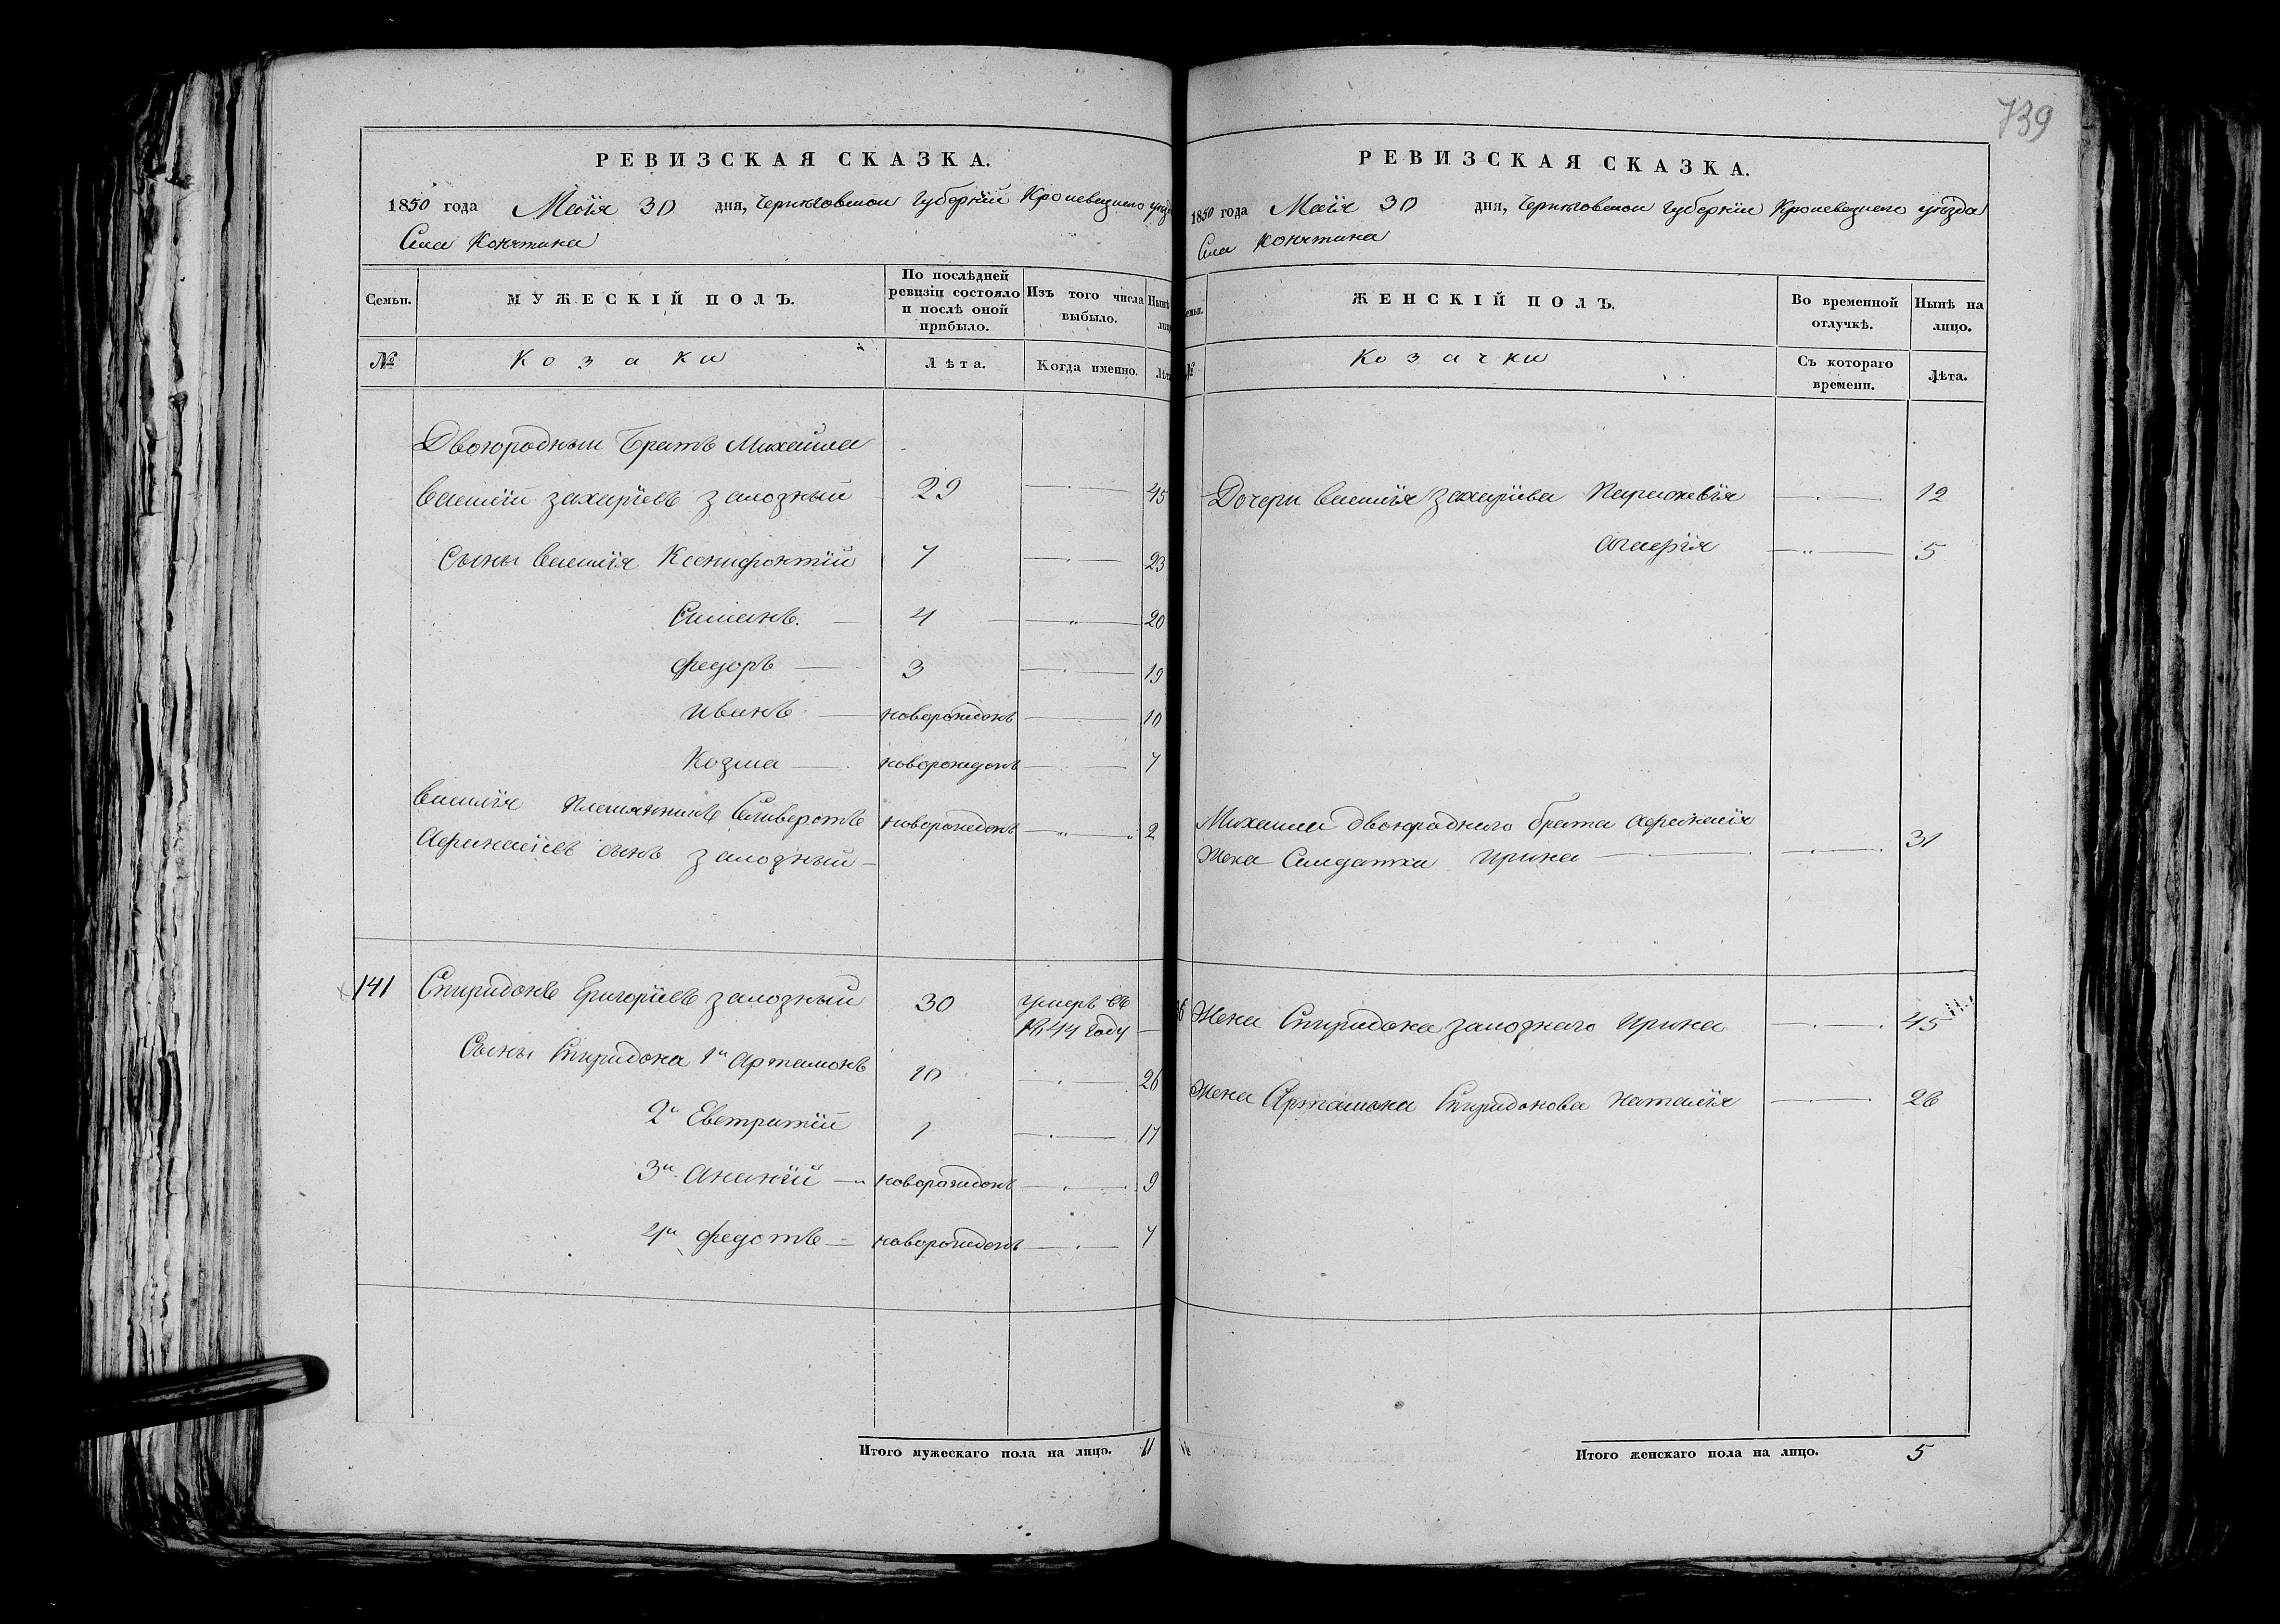 739
РЕВИЗСКАЯ СКАЗКА.
1850 года Маія 30 дня, Черниговской Губерніи Кролевецкаго уезда
Села Конятина
Семьи.
МУЖЕСКІЙ ПОЛЪ.
По послѣдней ревизіи состояло и послѣ оной прибыло.
Изъ того числа выбыло.
Нынѣ на лицо
№
Козаки
Лѣта.
Когда именно.
Лѣта
Двоюродный Братъ Михайла
Василій Захаріевъ Залозный 29 45
Сыны Василія Ксенифонтій 7 23
Симанъ. 4 20
Федоръ 3 19
Иванъ новорожденъ 10
Козма новорожденъ 7
Василія Племянникъ Селиверстъ новорожденъ 2
Афанасіевъ сынъ Залозный
141 Спиридонъ Григоріевъ Залозный 30 умеръ въ
1844 году
Сыны Спиридона 1й Артамонъ 10 26
2й Евстратій 1 17
3й Ананій новорожденъ 9
4й Федотъ новорожденъ 7
Итого мужескаго пола на лицо. 11
РЕВИЗСКАЯ СКАЗКА.
1850 года Маія 30 дня, Черниговской Губерніи Кролевецкаго уезда
Села Конятина
Семьи.
ЖЕНСКІЙ ПОЛЪ.
Во временной отлучкѣ.
Нынѣ на лицо.
№
Козачки
Съ котораго времени.
Лѣта.
Дочери Василія Захаріева Параскевія 12
Агафія 5
Михайла двоюроднаго брата Афанасія
Жена Салдатка Ирина 31
Жена Спиридона Залознаго Ирина 45
Жена Артамона Спиридонова Наталія 26
Итого женскаго пола на лицо. 5